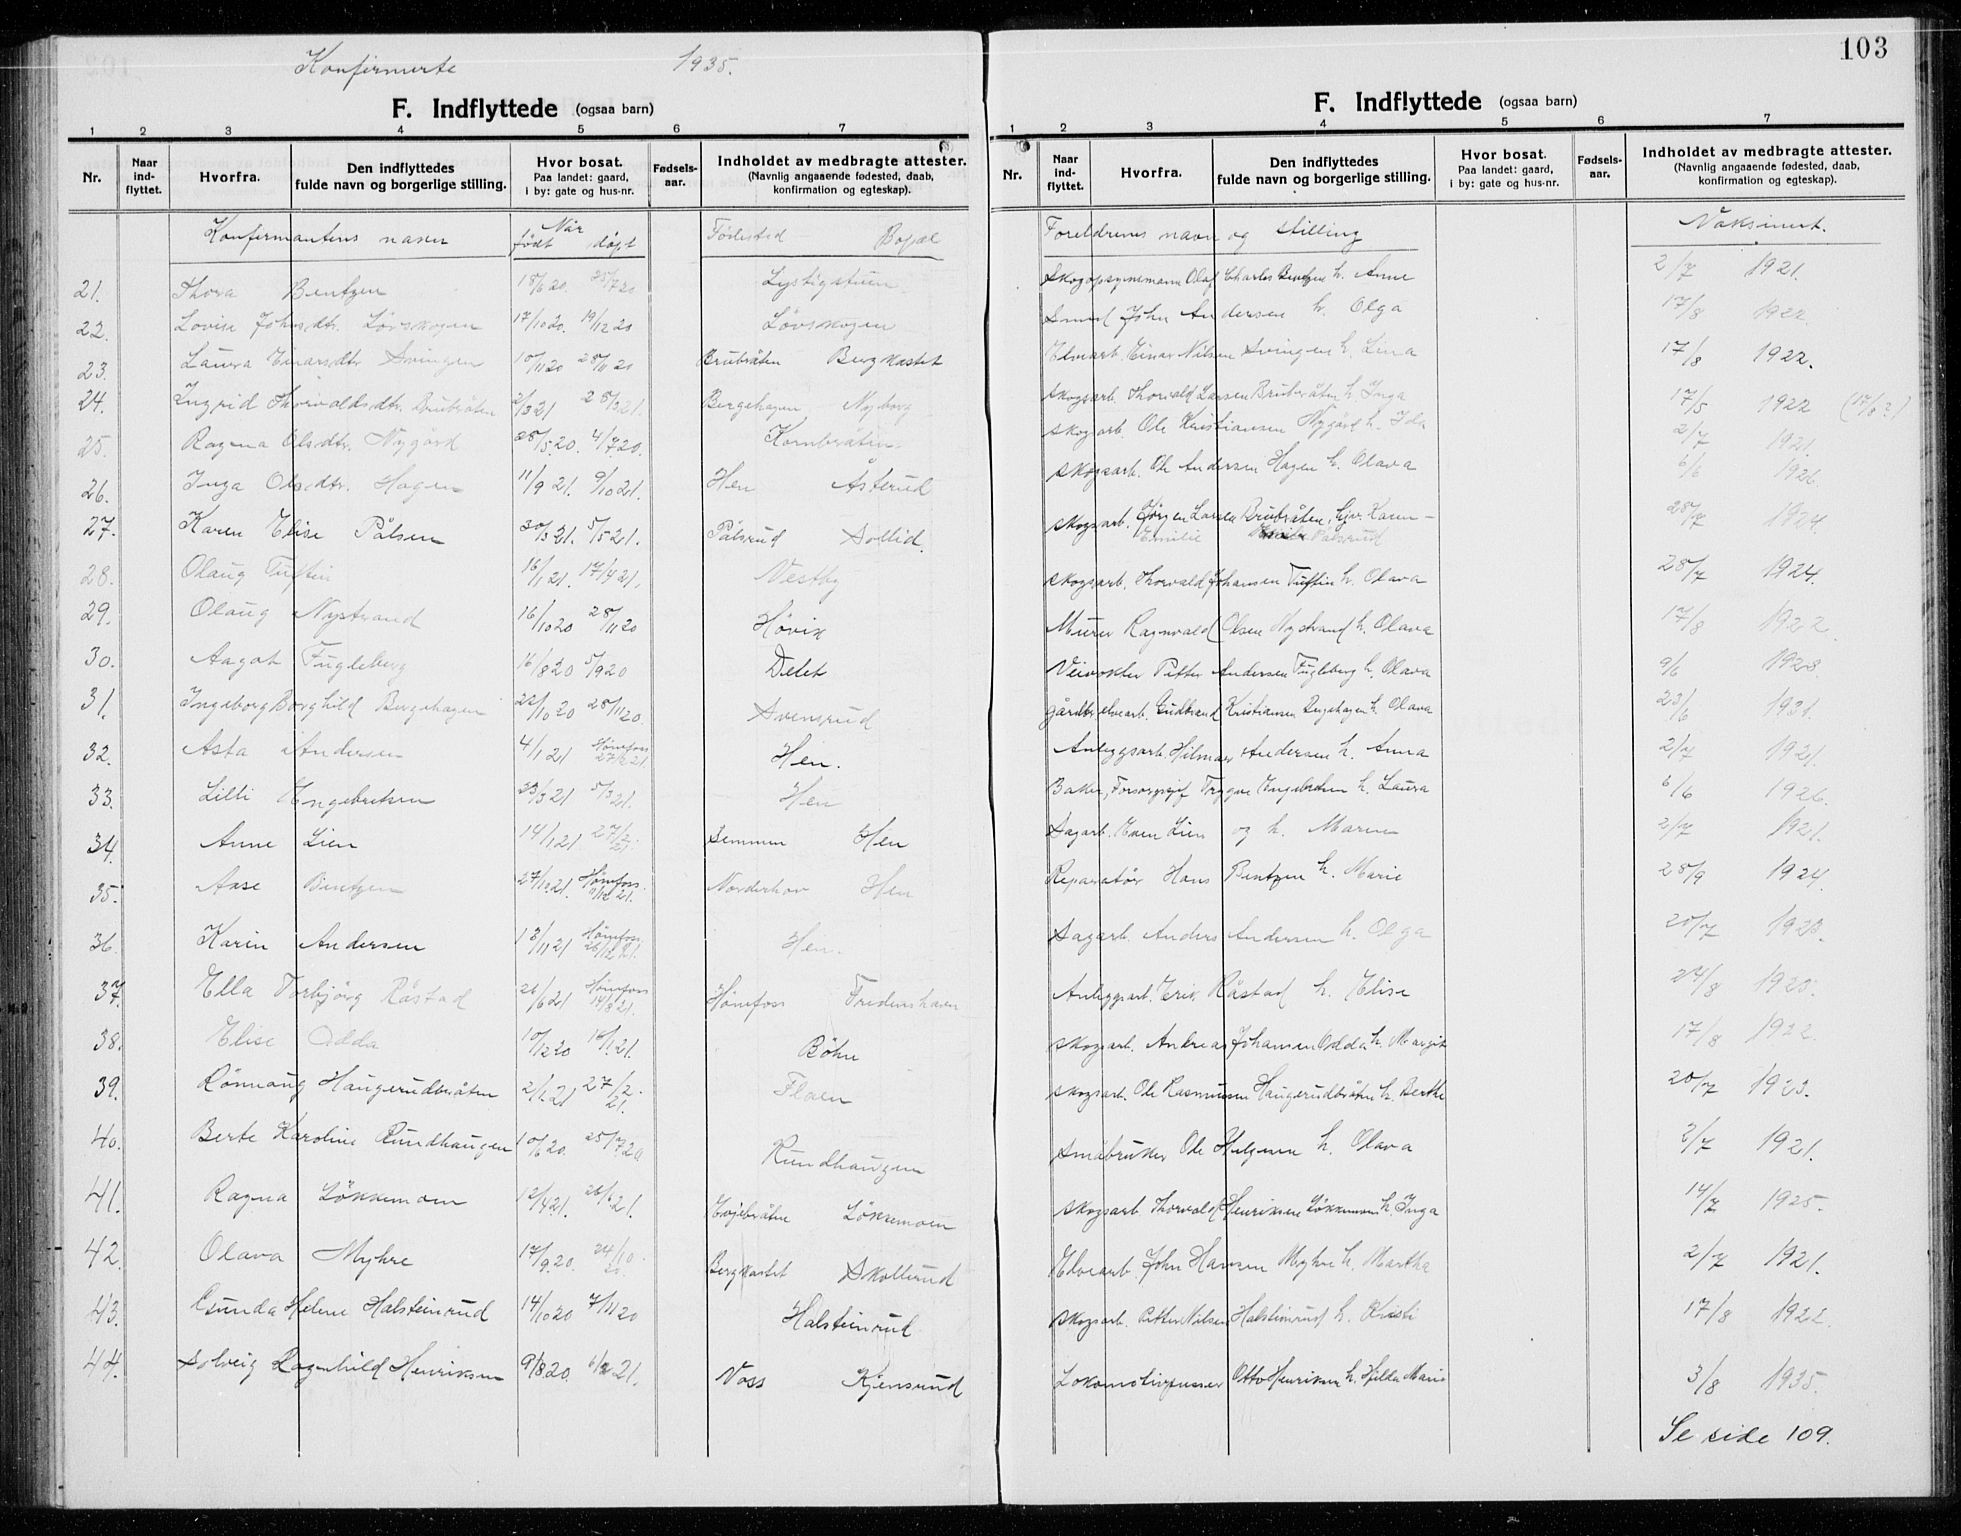 103
Konfirmerte 1935.
F. Indflyttede (ogsaa barn)
1 2 3 4 5 6 7
Nr. Naar ind-flyttet. Hvorfra. Den indflyttedes fulde navn og borgerlige stilling. Hvor bosat. Paa landet: gaard, i by: gate og hus-nr. Fødsels-aar. Indholdet av medbragte attester. (Navnlig angaaende fødested, daab, konfirmation og egteskap).
Konfirmantens navn Når født døpt Fødested Bopæl
21. Thora Bentzen 18/6 20. 25/7 20 Lystigstuen
22. Lovise Johsdtr. Lövskogen 17/10 20. 19/12 20 Lövskogen
23. Laura Einarsdtr Svingen 10/11 20 28/11 20 Brubråten Bergkastet
24. Ingrid Thorvaldsdtr. Brubråten 2/3 21 28/3 21. Bergehagen Nyborg
25. Ragna Olsdtr. Nygård 28/5 20. 4/7 20. Kornbråten
26. Inga Olsdtr. Hagen 11/9 21. 9/10 21. Hen Åsterud
27. Karen Elise Pålsen 30/3 21. 5/5 21. Pålsrud Sollid.
28. Olaug Tuftin 16/1 21. 17/4 21. Vestby
29. Olaug Nystrand 16/10 20 28/11 20 Hövik
30. Aagot Fugleberg 16/8 20 5/9 20 Delet
31. Ingeborg Borghild Bergehagen 22/10 20 28/11 20. Svensrud
32. Asta Andersen 4/1 21 Hönefoss 27/2 21 Hen.
33. Lilli Engebretsen 5/3 21. Hen
34. Anne Lien 14/1 21 27/2 21. Semmen Hen
35. Aase Bentzen Hönefoss Norderhov Hen
36. Karin Andersen 13/11 21 Hönefoss 26/12 21. Hen.
37. Ella Torbjörg Råstad 26/6 21 Hönefoss 14/8 21. Hönefoss Fredenshavn
38. Elise Odda 10/12 20 Böhn
39. Rönnaug Haugerudbråten 2/1 21 27/2 21. Flaen
40. Berte Karoline Rundhaugen 10/6 20. 25/7 20 Rundhaugen
41. Ragna Lökkemoen 12/4 21. Lökkemoen
42. Olava Myhre 17/9 20. 24/10 20. Bergkastet Skollerud
43. Gunda Helene Halsteinrud 14/10 20 7/11 20 Halsteinrud
44. Solveig Ragnhild Henriksen 9/8 20. Voss Kjensrud
F. Indflyttede (ogsaa barn)
1 2 3 4 5 6 7
Nr. Naar ind-flyttet. Hvorfra. Den indflyttedes fulde navn og borgerlige stilling. Hvor bosat. Paa landet: gaard, i by: gate og hus-nr. Fødsels-aar. Indholdet av medbragte attester. (Navnlig angaaende fødested, daab, konfirmation og egteskap).
Foreldrenes navn og stilling Vaksinert.
Skogopsynsmann Olaf Charles Bentzen h. Anne 2/7 1921.
Smed John Andersen h. Olga 17/8 1922.
Elvearb. Einar Nilsen Svingen h. Lina 17/8 1922.
Skogsarb. Thorvald Larsen Brubråten h. Inga 17/5 1922 (17/8?)
Skogarb. Ole Kristiansen Nygård h. Ida 2/7 1921.
Skogsarb. Ole Andersen Hagen h. Olava 6/6 1926.
Skogsarb. Jörgen Larsen Brubråten, hjv. Karen - Emilie Pålsrud 28/7 1924.
Skogsarb. Thorvald Johansen Tuftin h. Olava 28/7 1924.
Murer Ragnvald Olsen Nystrand h. Olava 17/8 1922.
Veivokter Petter Andersen Fugleberg h. Olava 9/6 1928.
gårdbr. elvearb. Gudbrand Kristiansen Bergehagen h. Olava 23/6 1931.
Anleggsarb. Hilmar Andersen h. Anna 2/7 1921.
Baker, Trygve Engebretsen h. Laura 6/6 1926.
Sagarb. Even Lien og h. Maren 2/7 1921.
Reparatör Hans Bentzen h. Marie 28/9 1924.
Sagarb. Anders Andersen h. Olga 20/7 1923.
Anleggsarb. Erik Råstad h. Elise 24/8
Skogsarb. Andreas Johansen Odda h. Margit 17/8 1922.
Skogsarb. Ole Rasmussen Haugerudbråten h. Berthe 20/7 1923.
Småbruker Ole Helgesen h. Olava 2/7 1921.
Skogsarb Thorvald Henriksen Lökkemoen h. Inga 14/7 1925.
Elvearb. John Hansen Myhre h. Martha 2/7 1921.
Skogsarb. Petter Nilsen Halsteinrud h. Kristi 17/8 1922.
Lokomotivpusser Otto Henriksen h. Hilda Marie 3/8 1935.
Se side 109.